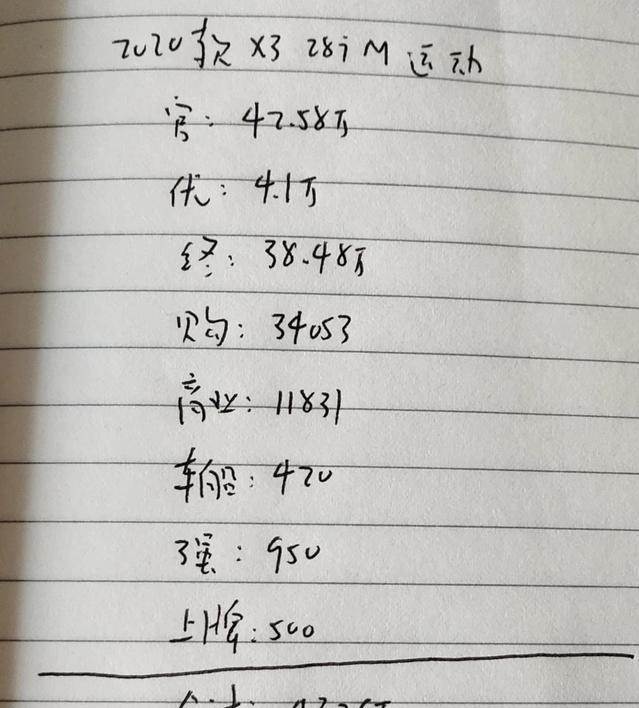 2020款 X3 28i M 运动
官: 42.58万
优: 4.1万
终: 38.48万
购: 34053
商业: 11831
车船: 420
强: 950
上牌: 500